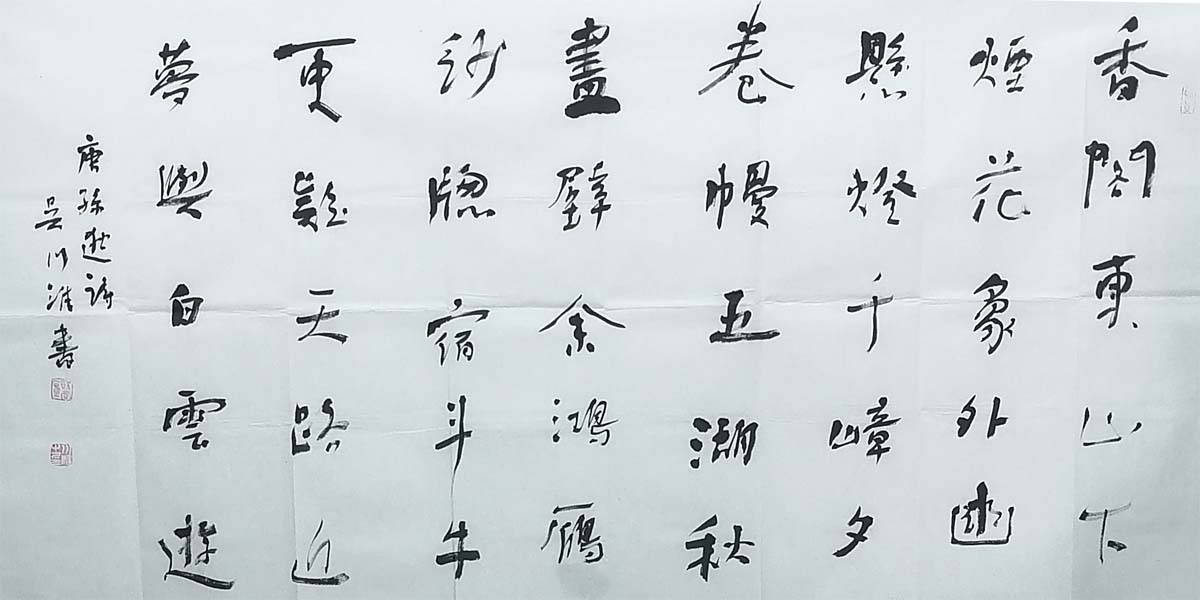 香閣東山下
煙花象外幽
懸燈千嶂夕
卷幔五湖秋
畫壁余鴻鴈
紗牕宿斗牛
更疑天路近
夢與白雲遊
唐孫逖詩
吳川淮書